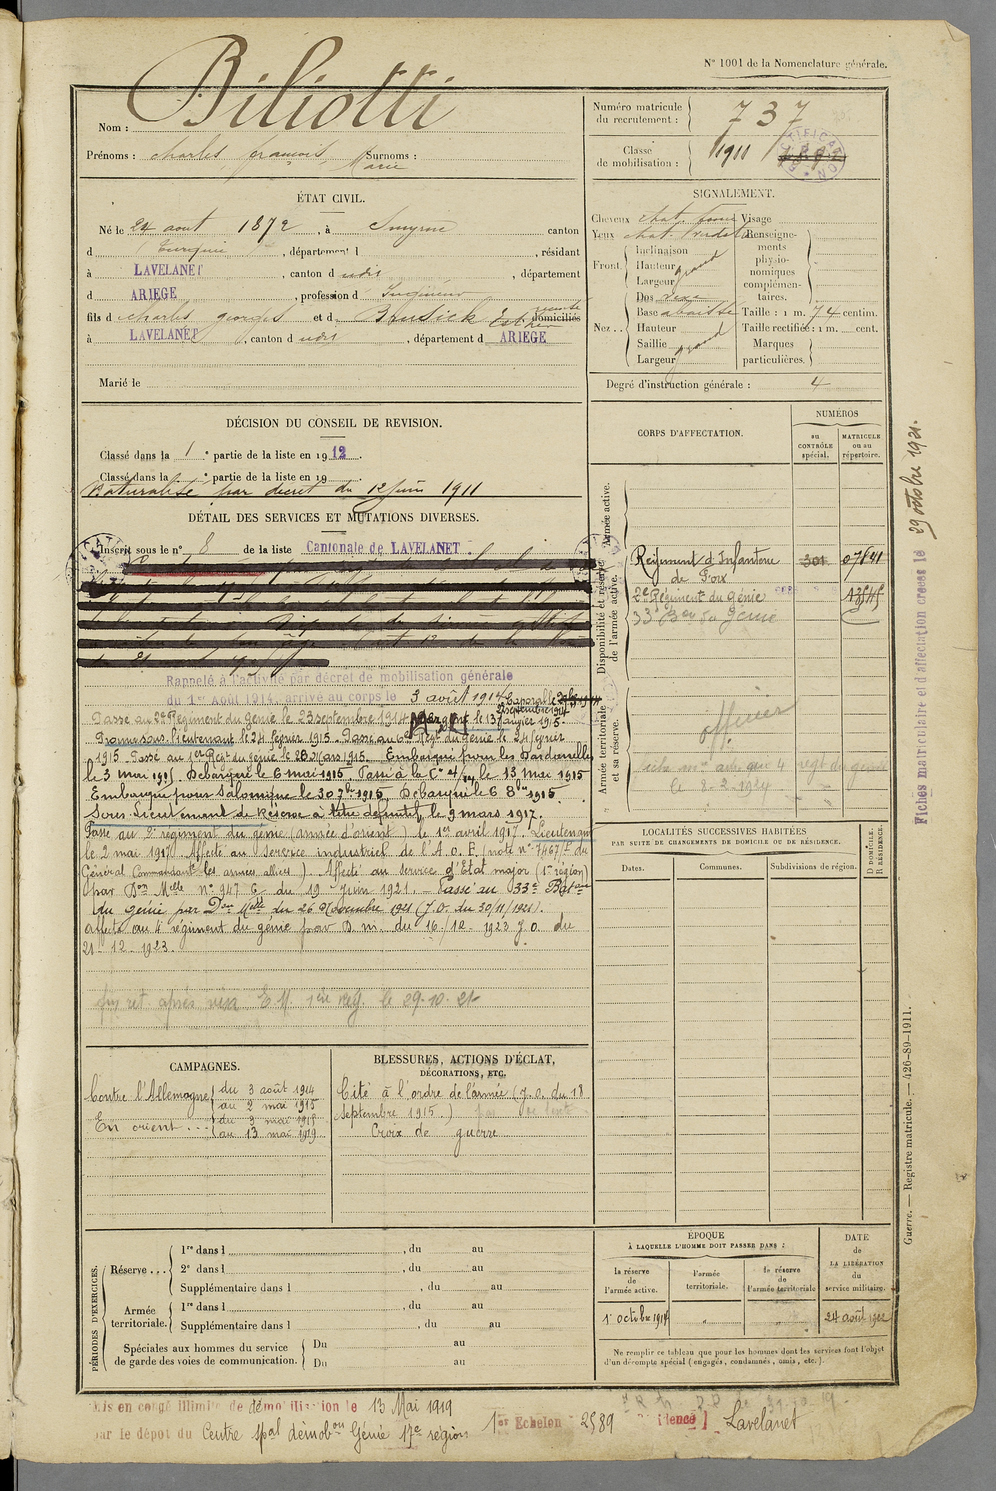 N° 1001 de la Nomenclature générale.
Biliotti
Nom :
Prénoms : charles françois Marie Surnoms :
Numéro matricule du recrutement : 737
Classe de mobilisation : 1911
ÉTAT CIVIL.
Né le 24 aout 1872, à Smyrne canton
d Turquie, département d , résidant
à LAVELANET, canton d udit , département
d ARIEGE, profession d Ingénieur
fils d charles georges et d Brusick Esther domiciliés
à LAVELANET, canton d udit, département d ARIEGE
Marié le
SIGNALEMENT.
Cheveux chat. Visage
Yeux chat. Renseignements physionomiques complémentaires.
Front. Inclinaison
Hauteur grand
Largeur
Nez.. Dos
Base abaissé Taille : 1 m. 74 centim.
Hauteur Taille rectifiée : 1 m. cent.
Saillie grand Marques particulières.
Largeur
Degré d'instruction générale : 4
DÉCISION DU CONSEIL DE REVISION.
Classé dans la 1e partie de la liste en 1912.
Classé dans la e partie de la liste en 19
Naturalisé par décret du 12 juin 1911
DÉTAIL DES SERVICES ET MUTATIONS DIVERSES.
Inscrit sous le n° 8 de la liste Cantonale de LAVELANET
Rappelé à l'activité par décret de mobilisation générale
du 1er Août 1914. arrivé au corps le 3 août 1914. Caporal le
Passé au 2e Régiment du génie le 23 septembre 1914. Sergent le 13 janvier 1915.
Promu sous-lieutenant le 24 février 1915. Passé au 6e Régt du génie le 24 février
1915. Passé au 1er Régt du génie le 28 Mars 1915. Embarqué pour les Dardanelles
le 3 mai 1915. Débarqué le 6 mai 1915. Passé à la Cie 4/ le 13 mai 1915
Embarqué pour Salonique le 30 7bre 1915. Débarqué le 6 8bre 1915.
Sous Lieutenant de Réserve à titre définitif, le 9 mars 1917.
Passé au 2e régiment du génie (armée d'orient) le 1er avril 1917. Lieutenant
le 2 mai 1917. Affecté au service industriel de l'A.O.F. (note n° 7467/ du
Général Commandant les armées alliées). Affecté au service d'Etat major (1re région)
par Don Mlle n° 947 G du 19 Juin 1921. Passé au 33e Baton
du génie par Don Mlle du 26 Novembre 1921 (J.O. du 30/11/1921).
affecté au 4e régiment du génie par D. m. du 16/12. 1923 J.O. du
21-12-1923.
ret. après visa E M 1ère rég. le 29.10.21
CORPS D'AFFECTATION.
NUMÉROS
au CONTRÔLE spécial.
MATRICULE ou au répertoire.
Armée active.
Disponibilité et réserve de l'armée active.
Régiment d'Infanterie de Foix 301 07841
2e Régiment du Génie
33 Bon du Génie
Armée territoriale et sa réserve.
officier
4 regt du genie
le 8-2-1924
LOCALITÉS SUCCESSIVES HABITÉES
PAR SUITE DE CHANGEMENTS DE DOMICILE OU DE RÉSIDENCE.
Dates. Communes. Subdivisions de région. D DOMICILE. R RÉSIDENCE.
Fiches matriculaire et d'affectation creees le 29 octobre 1921.
Guerre. — Registre matricule. — 426-89-1911.
CAMPAGNES.
Contre l'Allemagne du 3 août 1914
au 2 mai 1915
En orient ... du 3 mai 1915
au 13 mai 1919
BLESSURES, ACTIONS D'ÉCLAT,
DÉCORATIONS, ETC.
Cité à l'ordre de l'armée (J.O. du 18
septembre 1915.)
Croix de guerre
PÉRIODES D'EXERCICES.
Réserve... 1re dans l , du au
2e dans l , du au
Supplémentaire dans l , du au
Armée territoriale. 1re dans l , du au
Supplémentaire dans l , du au
Spéciales aux hommes du service de garde des voies de communication. Du au
Du au
ÉPOQUE
À LAQUELLE L'HOMME DOIT PASSER DANS :
la réserve de l'armée active. l'armée territoriale. la réserve de l'armée territoriale
DATE de LA LIBÉRATION du service militaire.
1er octobre 1914 " " 24 août 1922
Ne remplir ce tableau que pour les hommes dont les services font l'objet
d'un décompte spécial (engagés, condamnés, omis, etc.).
Mis en congé illimité de démobilisation le 13 Mai 1919
par le dépot du Centre spal démobon Génie 17e région 1er Echelon 2589 Lavelanet